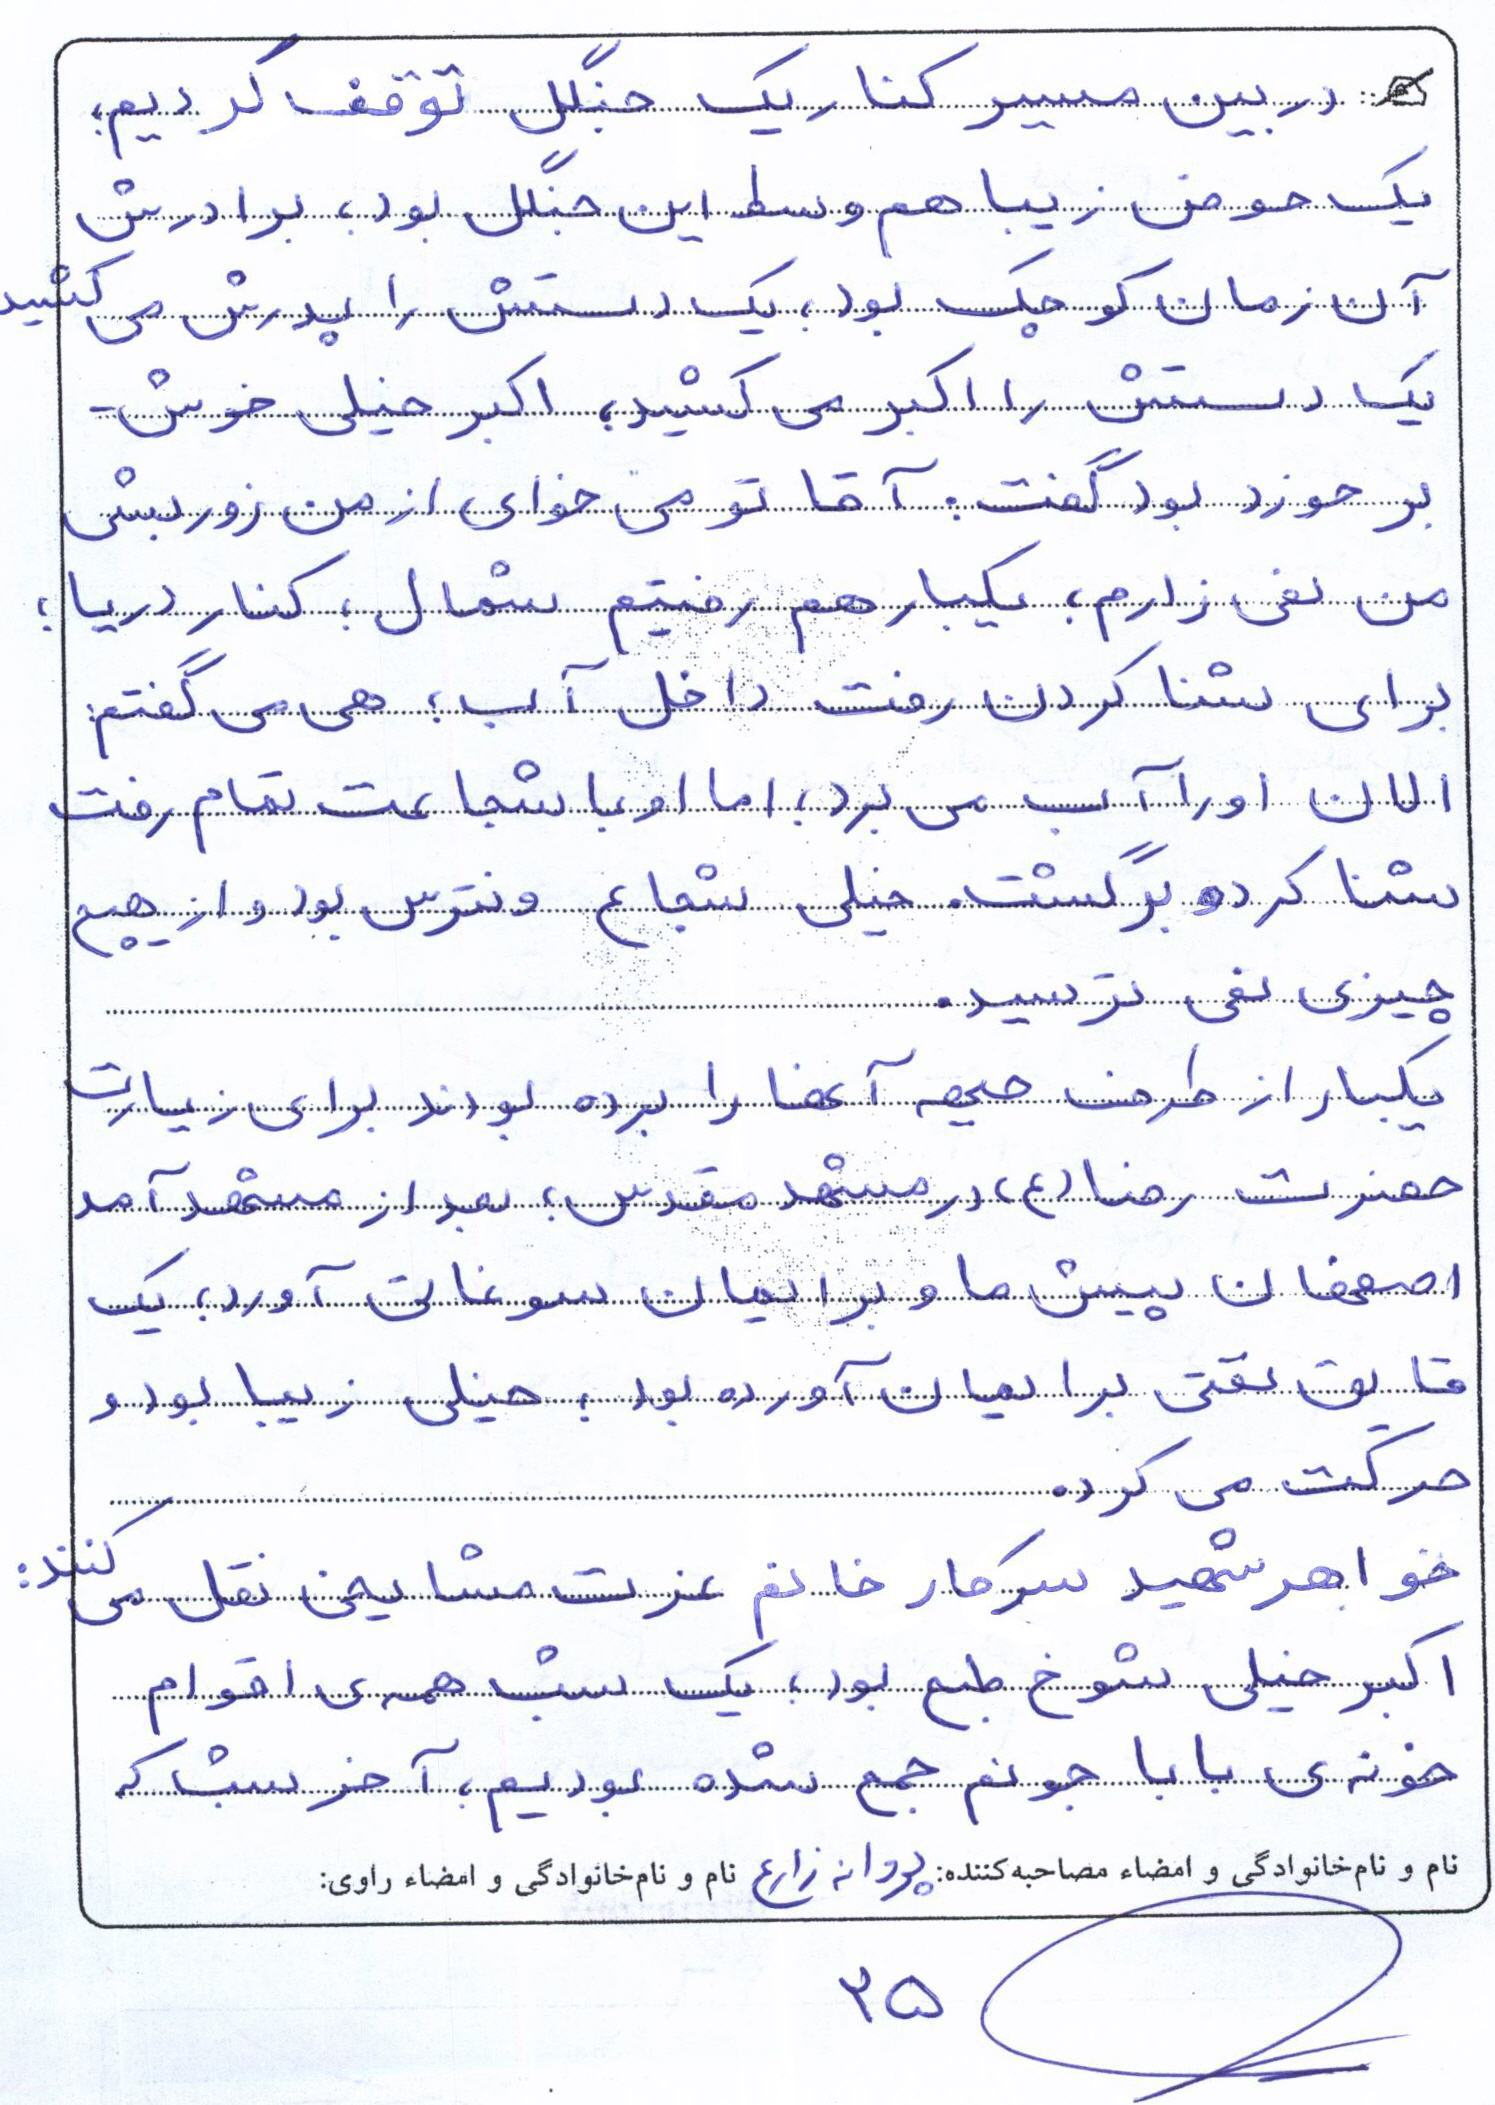 در بین مسیر کنار یک جنگل توقف کردیم؛
یک حوض زیبا هم وسط این جنگل بود، برادرش
آن زمان کوچک بود، یک دستش را پدرش می کشید
یک دستش را اکبر می کشید، اکبر خیلی خوش-
برخورد بود گفت: آقا تو می خوای از من زور بشی
من نمی زارم، یکبار هم رفتیم شمال، کنار دریا؛
برای شنا کردن رفت داخل آب؛ هی می گفتم:
الان او را آب می برد، اما او با شجاعت تمام رفت
شنا کرد و برگشت. خیلی شجاع و نترس بود و از هیچ
چیزی نمی ترسید.
یکبار از طرف جبهه آنها را برده بودند برای زیارت
حضرت رضا (ع) در مشهد مقدس؛ بعد از مشهد آمد
اصفهان پیش ما و برایمان سوغاتی آورد، یک
قایق نفتی برایمان آورده بود؛ خیلی زیبا بود و
حرکت می کرد.
خواهر شهید سرکار خانم عزت مشایخی نقل می کنند:
اکبر خیلی شوخ طبع بود، یک شب همه ی اقوام
خونه ی بابا جونم جمع شده بودیم، آخر شب که
نام و نام خانوادگی و امضاء مصاحبه کننده: پروانه زارع نام و نام خانوادگی و امضاء راوی:
۲۵